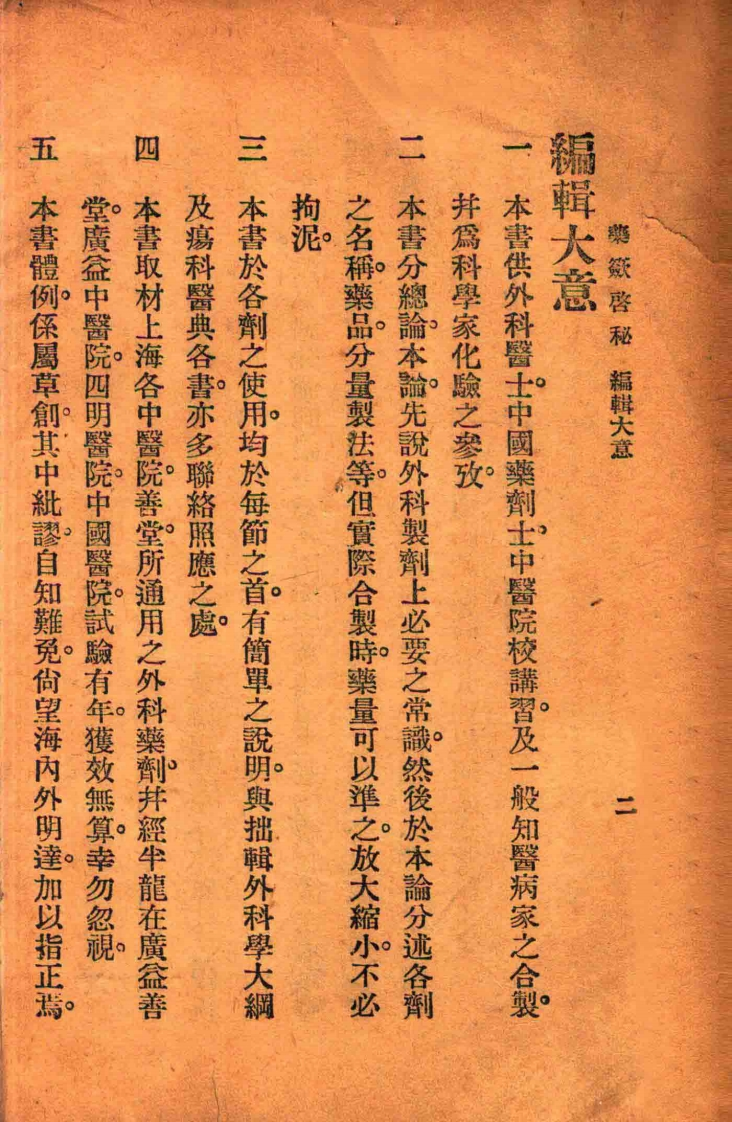 藥籨啓秘　編輯大意
二
編輯大意
一　本書供外科醫士。中國藥劑士。中醫院校講習。及一般知醫病家之合製。
幷爲科學家化驗之參攷。
二　本書分總論。本論。先說外科製劑上必要之常識。然後於本論分述各劑
之名稱。藥品。分量製法等。但實際合製時。藥量可以準之。放大縮小。不必
拘泥。
三　本書於各劑之使用。均於每節之首。有簡單之說明。與拙輯外科學大綱
及瘍科醫典各書。亦多聯絡照應之處。
四　本書取材上海各中醫院。善堂。所通用之外科藥劑。幷經半龍在廣益善
堂。廣益中醫院。四明醫院。中國醫院。試驗有年。獲效無算。幸勿忽視。
五　本書體例。係屬草創。其中紕謬。自知難免。尙望海內外明達。加以指正焉。